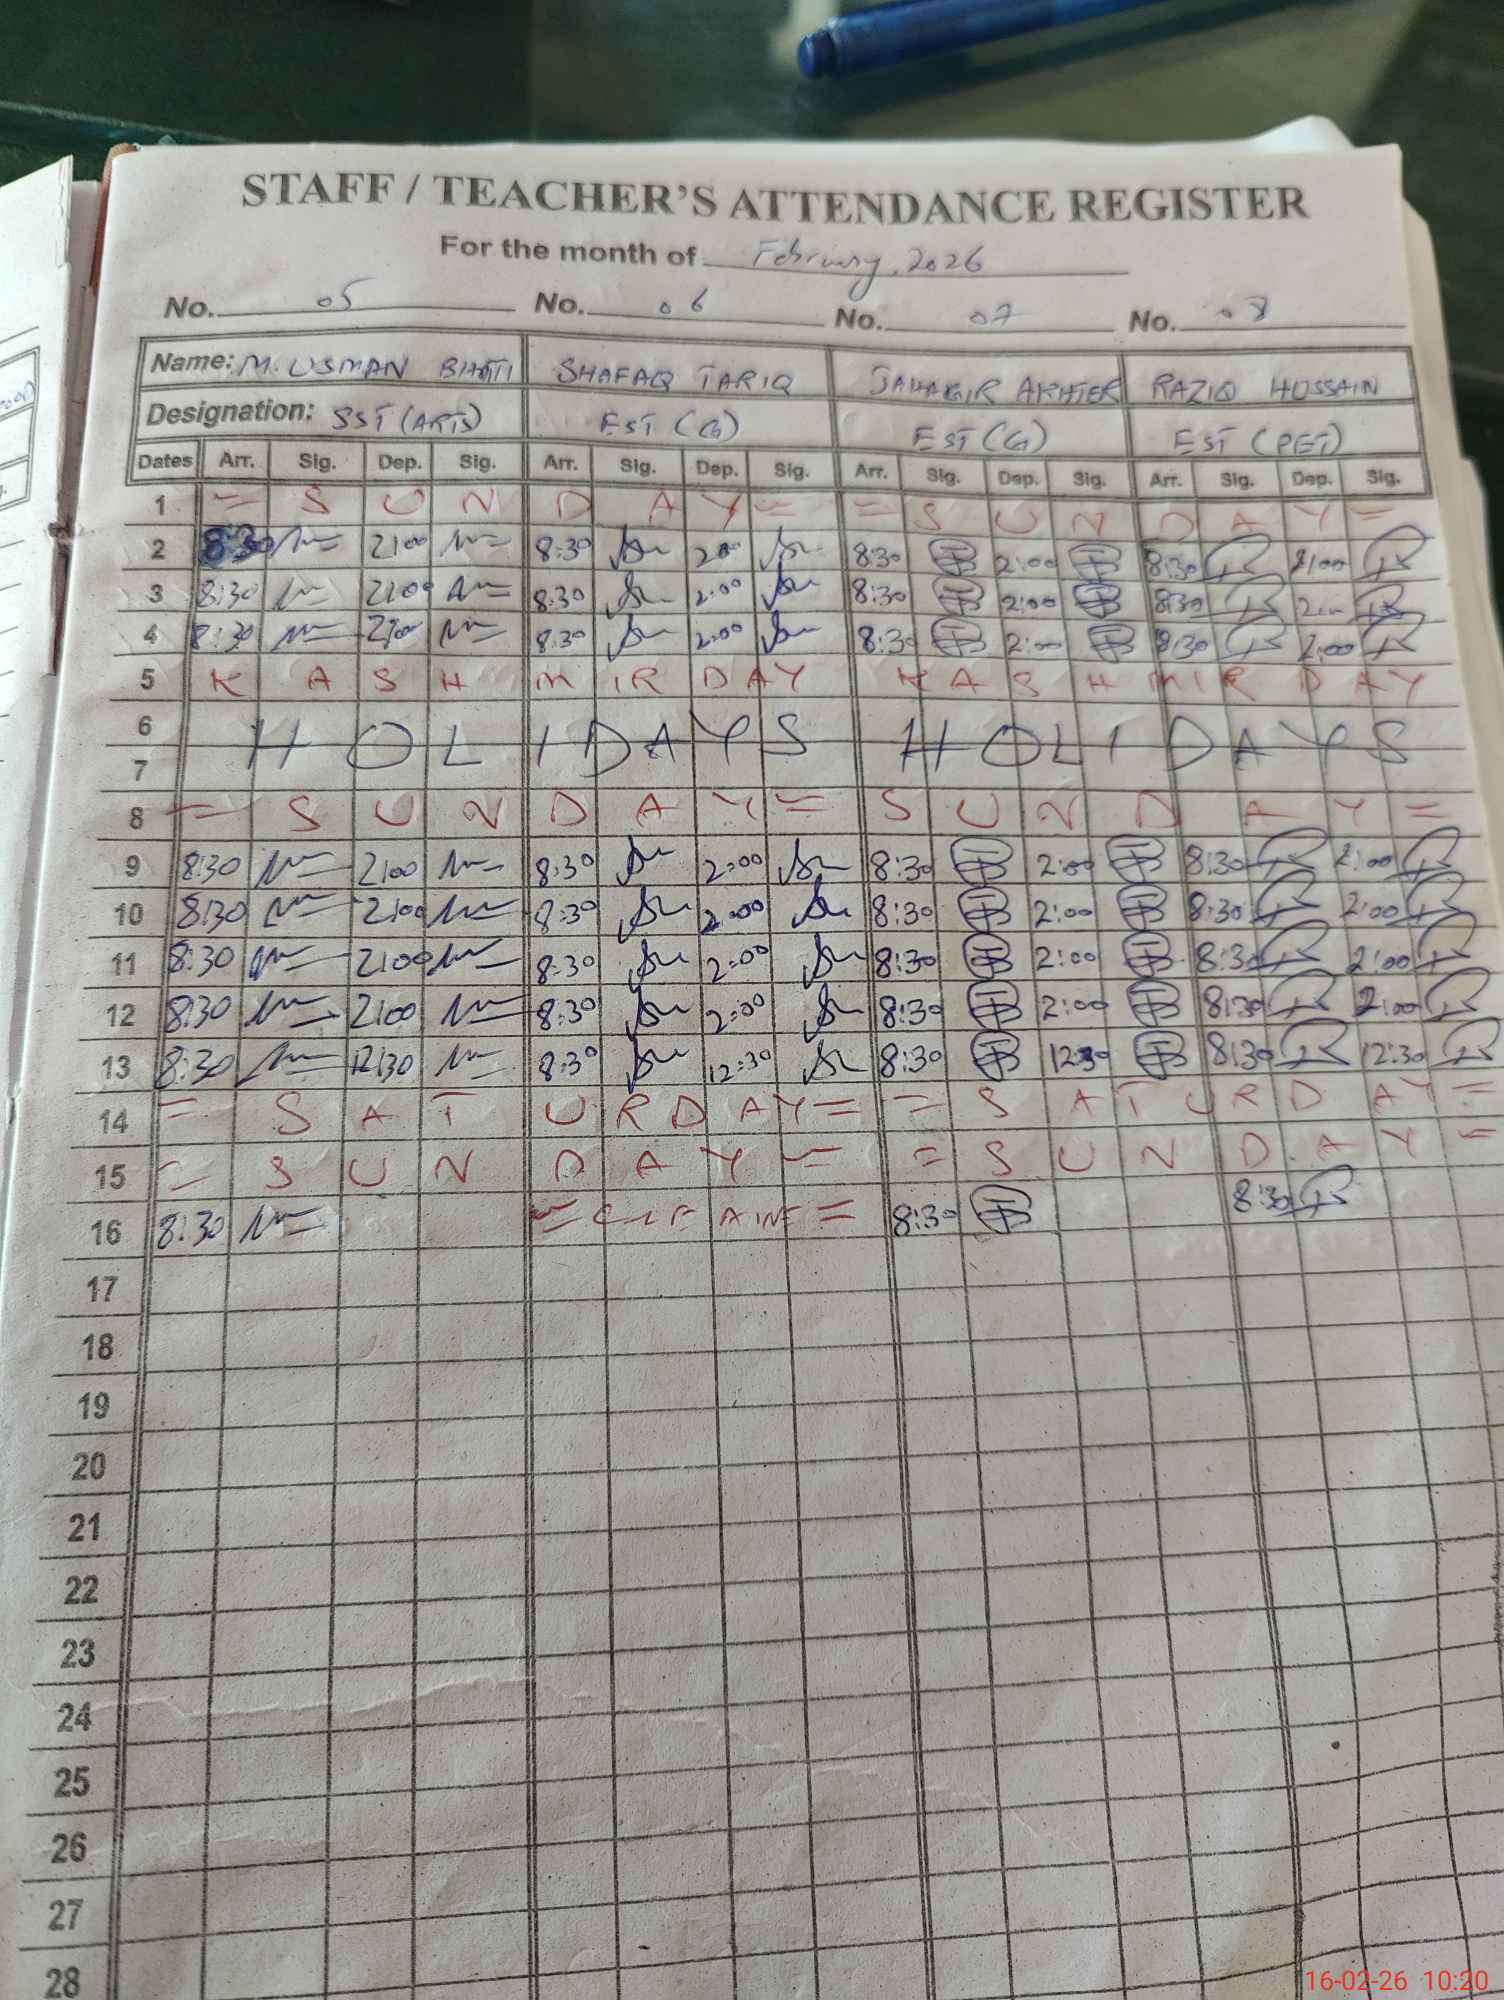 STAFF / TEACHER'S ATTENDANCE REGISTER
For the month of February, 2026
No. 05 No. 06 No. 07 No. 08
Name: M. USMAN BHATTI SHAFAQ TARIQ JAHAGIR AKHTER RAZIQ HUSSAIN
Designation: SST (ARTS) EST (G) EST (G) EST (PET)
Dates Arr. Sig. Dep. Sig. Arr. Sig. Dep. Sig. Arr. Sig. Dep. Sig. Arr. Sig. Dep. Sig.
1 = SUNDAY = = SUNDAY =
2 8:30 2:00 8:30 2:00 8:30 2:00 8:30 2:00
3 8:30 2:00 8:30 2:00 8:30 2:00 8:30 2:00
4 8:30 2:00 8:30 2:00 8:30 2:00 8:30 2:00
5 KASHMIR DAY KASHMIR DAY
6 HOLIDAYS HOLIDAYS
7
8 = SUNDAY = SUNDAY =
9 8:30 2:00 8:30 2:00 8:30 2:00 8:30 2:00
10 8:30 2:00 8:30 2:00 8:30 2:00 8:30 2:00
11 8:30 2:00 8:30 2:00 8:30 2:00 8:30 2:00
12 8:30 2:00 8:30 2:00 8:30 2:00 8:30 2:00
13 8:30 12:30 8:30 12:30 8:30 12:30 8:30 12:30
14 = SATURDAY = = SATURDAY =
15 = SUNDAY = = SUNDAY =
16 8:30 8:30 8:30
17
18
19
20
21
22
23
24
25
26
27
28
16-02-26 10:20